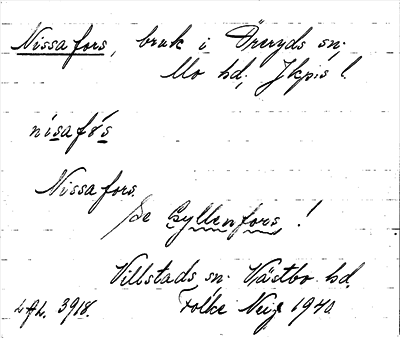 Nissafors, bruk i Öreryds sn;
Mo hd; Jkp:s l.
nisafås
Nissafors.
Se Gyllenfors!
Villstads sn. Västbo hd.
Lfl. 3918. Folke Neij 1940